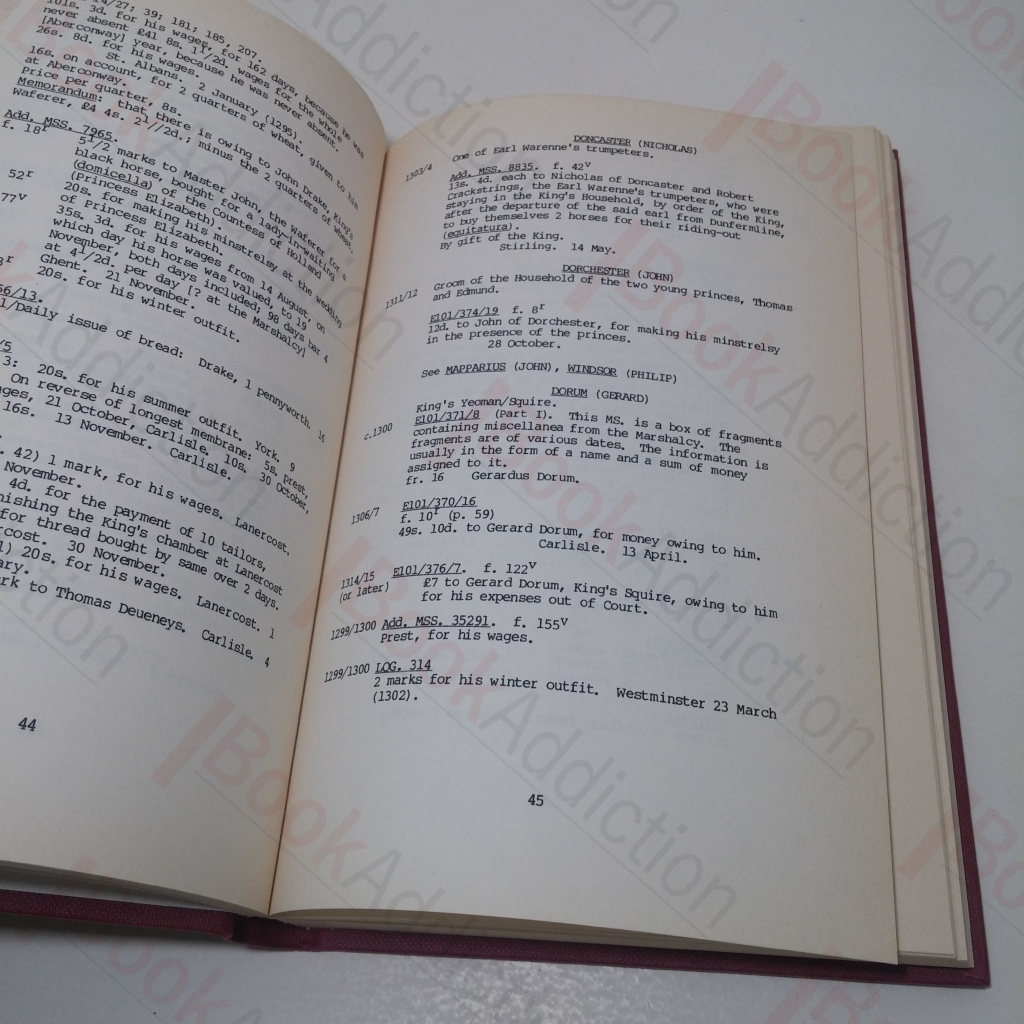 14/27; 39; 181; 185, 207.
101s. 3d. for his wages, for 162 days, because he was
never absent £41 8s. 1 1/2d. wages for the whole
[Aberconway] year, because he was never absent.
26s. 8d. for his wages.
St. Albans. 2 January (1295).
16s. on account, for 2 quarters of wheat, given to him
at Aberconway.
Price per quarter, 8s.
Memorandum: that there is owing to John Drake, King's
Waferer, £4 4s. 2 1//2d.; minus the 2 quarters of wheat.
Add. MSS. 7965.
f. 18r
5 1/2 marks to Master John, the Waferer for a
black horse, bought for a lady-in-waiting
(domicella) of the Countess of Holland
(Princess Elizabeth).
52r
20s. for making his minstrelsy at the wedding
of Princess Elizabeth.
77v
35s. 3d. for his wages from 14 August, on
which day his horse was valued, to 19
November, both days included; 98 days bar 4
at 4 1/2d. per day [? at the Marshalcy]
Ghent. 21 November.
20s. for his winter outfit.
66/13.
1/Daily issue of bread: Drake, 1 pennyworth. 16
/5
3: 20s. for his summer outfit. York. 9
On reverse of longest membrane: 5s. prest,
ges, 21 October, Carlisle. 10s. 30 October,
16s. 13 November. Carlisle.
. 42) 1 mark, for his wages. Lanercost.
November.
4d. for the payment of 10 tailors,
nishing the King's chamber at Lanercost
for thread bought by same over 2 days.
rcost. 30 November.
1) 20s. for his wages. Lanercost. 1
ary.
rk to Thomas Deueneys. Carlisle. 4
44
DONCASTER (NICHOLAS)
One of Earl Warenne's trumpeters.
1303/4 Add. MSS. 8835. f. 42v
13s. 4d. each to Nicholas of Doncaster and Robert
Crackstrings, the Earl Warenne's trumpeters, who were
staying in the King's Household, by order of the King,
after the departure of the said earl from Dunfermline,
to buy themselves 2 horses for their riding-out
(equitatura).
By gift of the King.
Stirling. 14 May.
DORCHESTER (JOHN)
Groom of the Household of the two young princes, Thomas
and Edmund.
1311/12
E101/374/19 f. 8r
12d. to John of Dorchester, for making his minstrelsy
in the presence of the princes.
28 October.
See MAPPARIUS (JOHN), WINDSOR (PHILIP)
DORUM (GERARD)
King's Yeoman/Squire.
c.1300 E101/371/8 (Part I). This MS. is a box of fragments
containing miscellanea from the Marshalcy. The
fragments are of various dates. The information is
usually in the form of a name and a sum of money
assigned to it.
fr. 16 Gerardus Dorum.
1306/7 E101/370/16
f. 10r (p. 59)
49s. 10d. to Gerard Dorum, for money owing to him.
Carlisle. 13 April.
1314/15 E101/376/7. f. 122v
(or later) £7 to Gerard Dorum, King's Squire, owing to him
for his expenses out of Court.
1299/1300 Add. MSS. 35291. f. 155v
Prest, for his wages.
1299/1300 LOG. 314
2 marks for his winter outfit. Westminster 23 March
(1302).
45